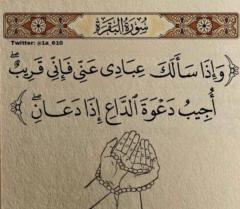 سُورَةُ البَقَرَةِ
Twitter: @1a_010
﴿وَإِذَا سَأَلَكَ عِبَادِى عَنِّى فَإِنِّى قَرِيبٌۖ
أُجِيبُ دَعْوَةَ ٱلدَّاعِ إِذَا دَعَانِۖ﴾